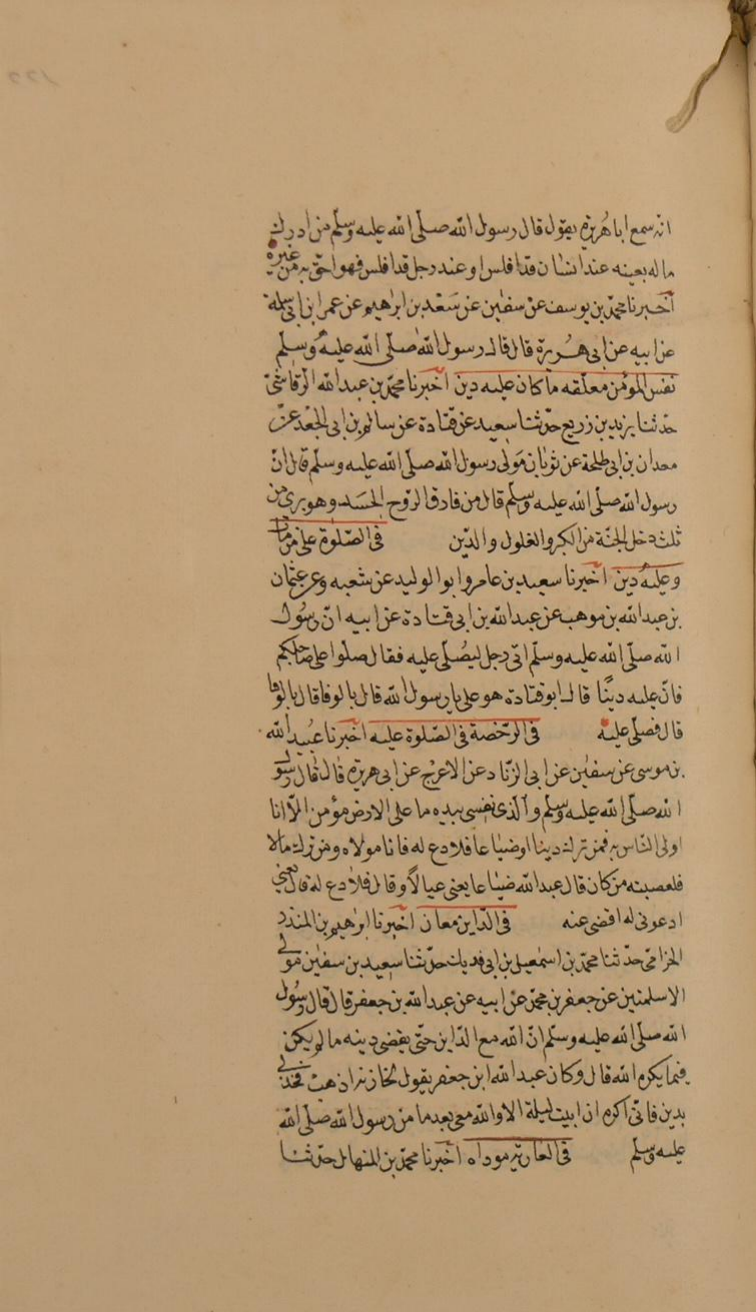 انه سمع ابا هريرة يقول قال رسول الله صلى الله عليه وسلم من ادرك
ماله بعينه عند انسان قد افلس او عند رجل قد افلس فهو احق به من غيره
اخبرنا محمد بن يوسف عن سفين عن سعد بن ابرهيم عن عمر ابن ابى سلمة
عن ابيه عن ابى هريرة قال قال رسول الله صلى الله عليه وسلم
نفس المؤمن معلقه ما كان عليه دين اخبرنا محمد بن عبد الله الرقاشى
حدثنا يزيد بن زريع حدثنا سعيد عن قتادة عن سالم بن ابى الجعد عن
معدان بن ابى طلحة عن ثوبان مولى رسول الله صلى الله عليه وسلم قال ان
رسول الله صلى الله عليه وسلم قال من فارق الروح الجسد وهو برئ من
ثلث دخل الجنة من الكبر والغلول والدين فى الصلوة على من مات
وعليه دين اخبرنا سعيد بن عامر وابو الوليد عن شعبه وعن عثمان
بن عبد الله بن موهب عن عبد الله بن ابى قتادة عن ابيه ان رسول
الله صلى الله عليه وسلم اتى رجل ليصلى عليه فقال صلوا على صاحبكم
فان عليه دينا قال ابو قتادة هو على يا رسول الله قال بالوفا قال بالوفا
قال فصلى عليه فى الرخصة فى الصلوة عليه اخبرنا عبيد الله
بن موسى عن سفين عن ابى الزناد عن الاعرج عن ابى هريرة قال قال رسول
الله صلى الله عليه وسلم والذى نفسى بيده ما على الارض مؤمن الا انا
اولى الناس به فمن ترك دينا او ضياعا فلادع له فانا مولاه ومن ترك مالا
فلعصبته من كان قال عبد الله ضياعا يعنى عيالا وقال فلادع له قال يعنى
ادعونى له اقضى عنه فى الداين معان اخبرنا ابرهيم بن المنذر
الحزامى حدثنا محمد بن اسمعيل بن ابى فديك حدثنا سعيد بن سفين مولى
الاسلميين عن جعفر بن محمد عن ابيه عن عبد الله بن جعفر قال قال رسول
الله صلى الله عليه وسلم ان الله مع الداين حتى يقضى دينه ما لم يكن
فيما يكره الله قال وكان عبد الله ابن جعفر يقول لخازنه اذهب فخذ لى
بدين فانى اكره ان ابيت ليلة الا والله معى بعد ما من رسول الله صلى الله
عليه وسلم فى العارية موداه اخبرنا محمد بن المنهال حدثنا